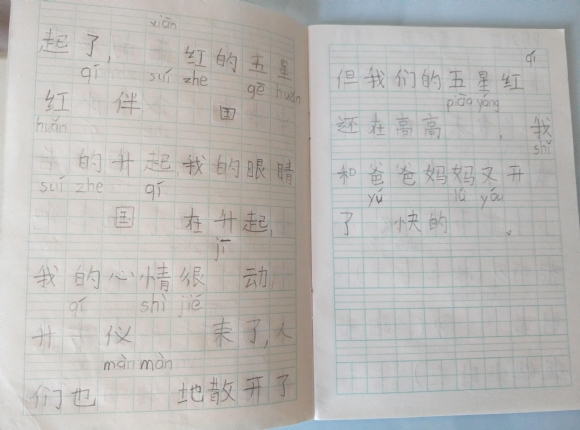 xiān
起了, 红的五星
qí suí zhe gē huǎn
红 伴 国
huǎn
的升起,我的眼睛
suí zhe qí
国 在升起,
jī
我的心情很 动,
qí shì jié
升 仪 束了,人
màn màn
们也 地散开了
qí
但我们的五星红
piāo yáng
还在高高 , 我
shǐ
和爸爸妈妈又开
yú lǚ yóu
了 快的 。